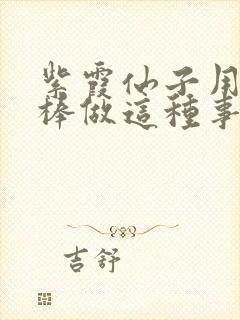 紫霞仙子用
棒做這種事
吉舒